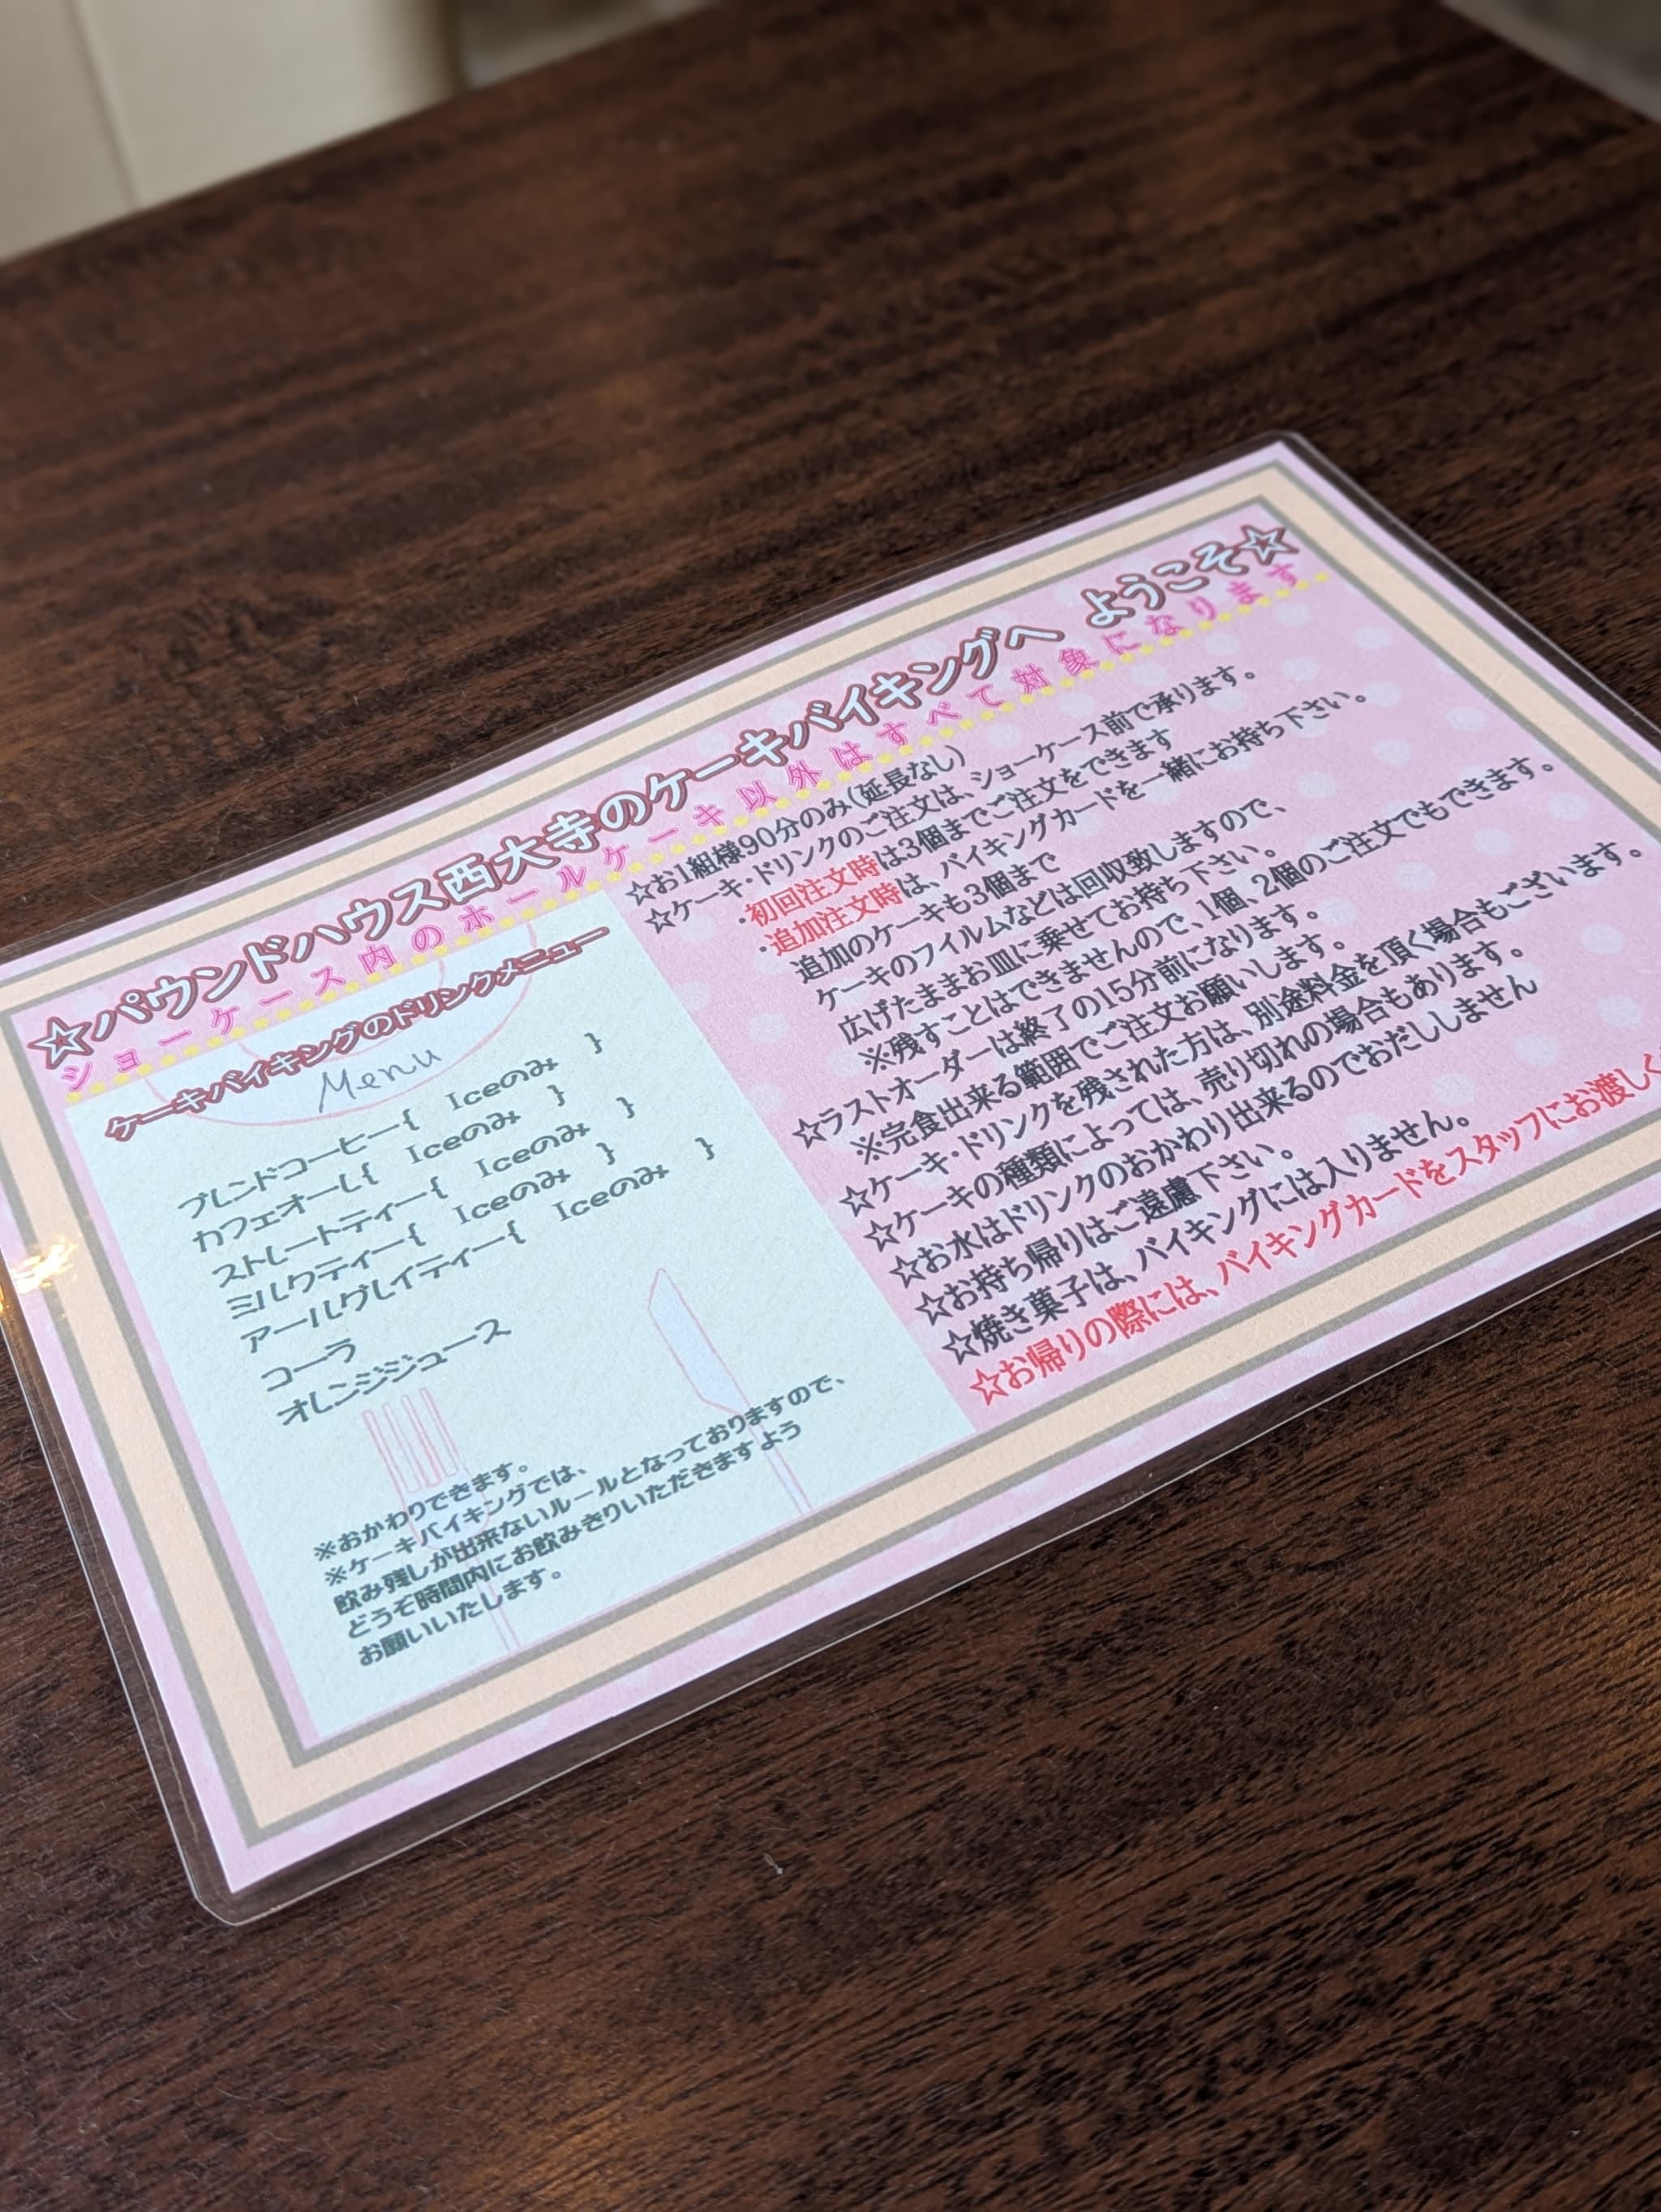 ☆パウンドハウス西大寺のケーキバイキングへ ようこそ☆
ショーケース内のホールケーキ以外はすべて対象になります
ケーキバイキングのドリンクメニュー
Menu
ブレンドコーヒー{ Iceのみ }
カフェオーレ{ Iceのみ }
ストレートティー{ Iceのみ }
ミルクティー{ Iceのみ }
アールグレイティー{ Iceのみ }
コーラ
オレンジジュース
※おかわりできます。
※ケーキバイキングでは、
飲み残しが出来ないルールとなっておりますので、
どうぞ時間内にお飲みきりいただきますよう
お願いいたします。
☆お1組様90分のみ(延長なし)
☆ケーキ・ドリンクのご注文は、ショーケース前で承ります。
・初回注文時は3個までご注文をできます
・追加注文時は、バイキングカードを一緒にお持ち下さい。
追加のケーキも3個まで
ケーキのフイルムなどは回収致しますので、
広げたままお皿に乗せてお持ち下さい。
※残すことはできませんので、1個、2個のご注文でもできます。
☆ラストオーダーは終了の15分前になります。
※完食出来る範囲でご注文お願いします。
☆ケーキ・ドリンクを残された方は、別途料金を頂く場合もございます。
☆ケーキの種類によっては、売り切れの場合もあります。
☆お水はドリンクのおかわり出来るのでおだししません
☆お持ち帰りはご遠慮下さい。
☆焼き菓子は、バイキングには入りません。
☆お帰りの際には、バイキングカードをスタッフにお渡しく